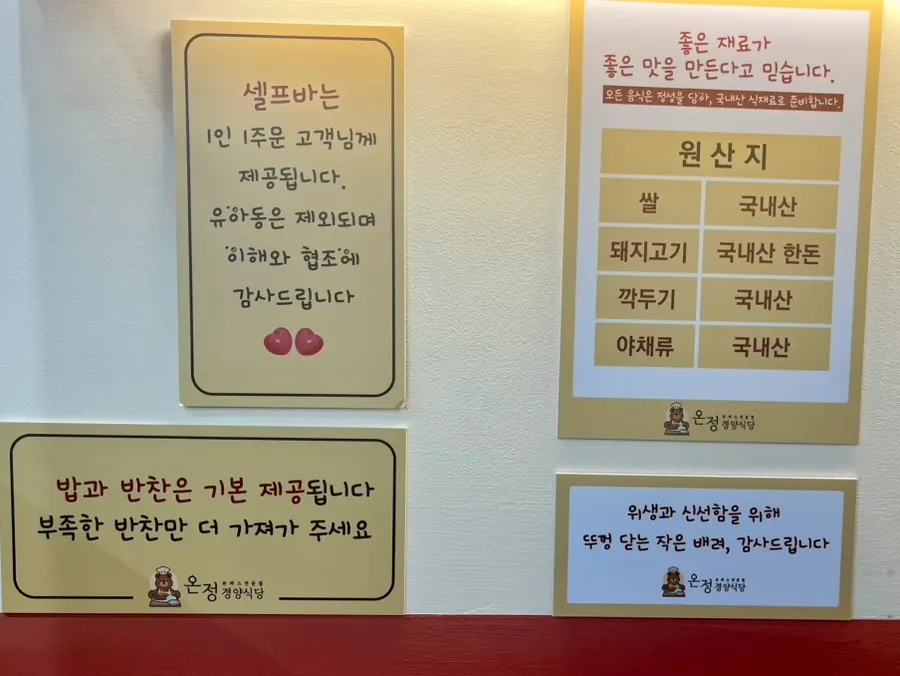 셀프바는
1인 1주문 고객님께
제공됩니다.
유아동은 제외되며
이해와 협조에
감사드립니다
좋은 재료가
좋은 맛을 만든다고 믿습니다.
모든 음식은 정성을 담아, 국내산 식재료로 준비합니다.
원산지
쌀 국내산
돼지고기 국내산 한돈
깍두기 국내산
야채류 국내산
온정
경양식당
밥과 반찬은 기본 제공됩니다
부족한 반찬만 더 가져가 주세요
온정
경양식당
위생과 신선함을 위해
뚜껑 닫는 작은 배려, 감사드립니다
온정
경양식당